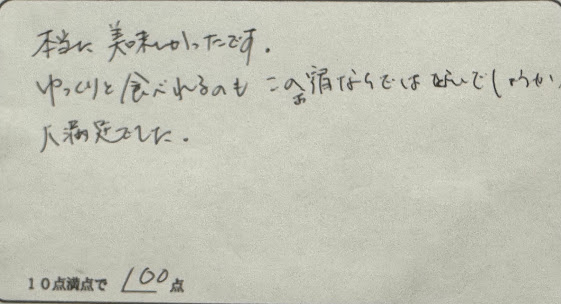 本当に美味しかったです。
ゆっくりと食べれるのもこのお宿ならではないでしょうか
大満足でした。
10点満点で 100 点